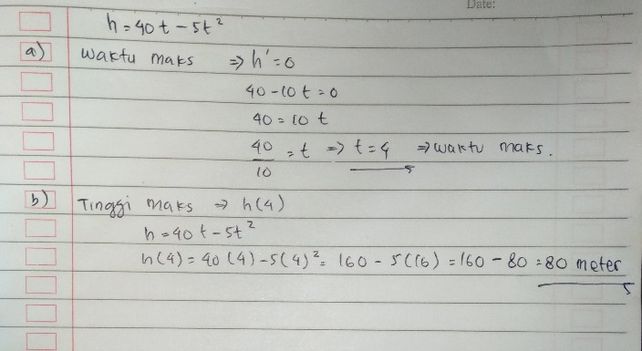 Date:
h = 40t - 5t²
a) Waktu maks ⇒ h' = 0
40 - 10t = 0
40 = 10 t
40/10 = t ⇒ t = 4 ⇒ waktu maks.
b) Tinggi maks ⇒ h(4)
h = 40t - 5t²
h(4) = 40(4) - 5(4)² = 160 - 5(16) = 160 - 80 = 80 meter